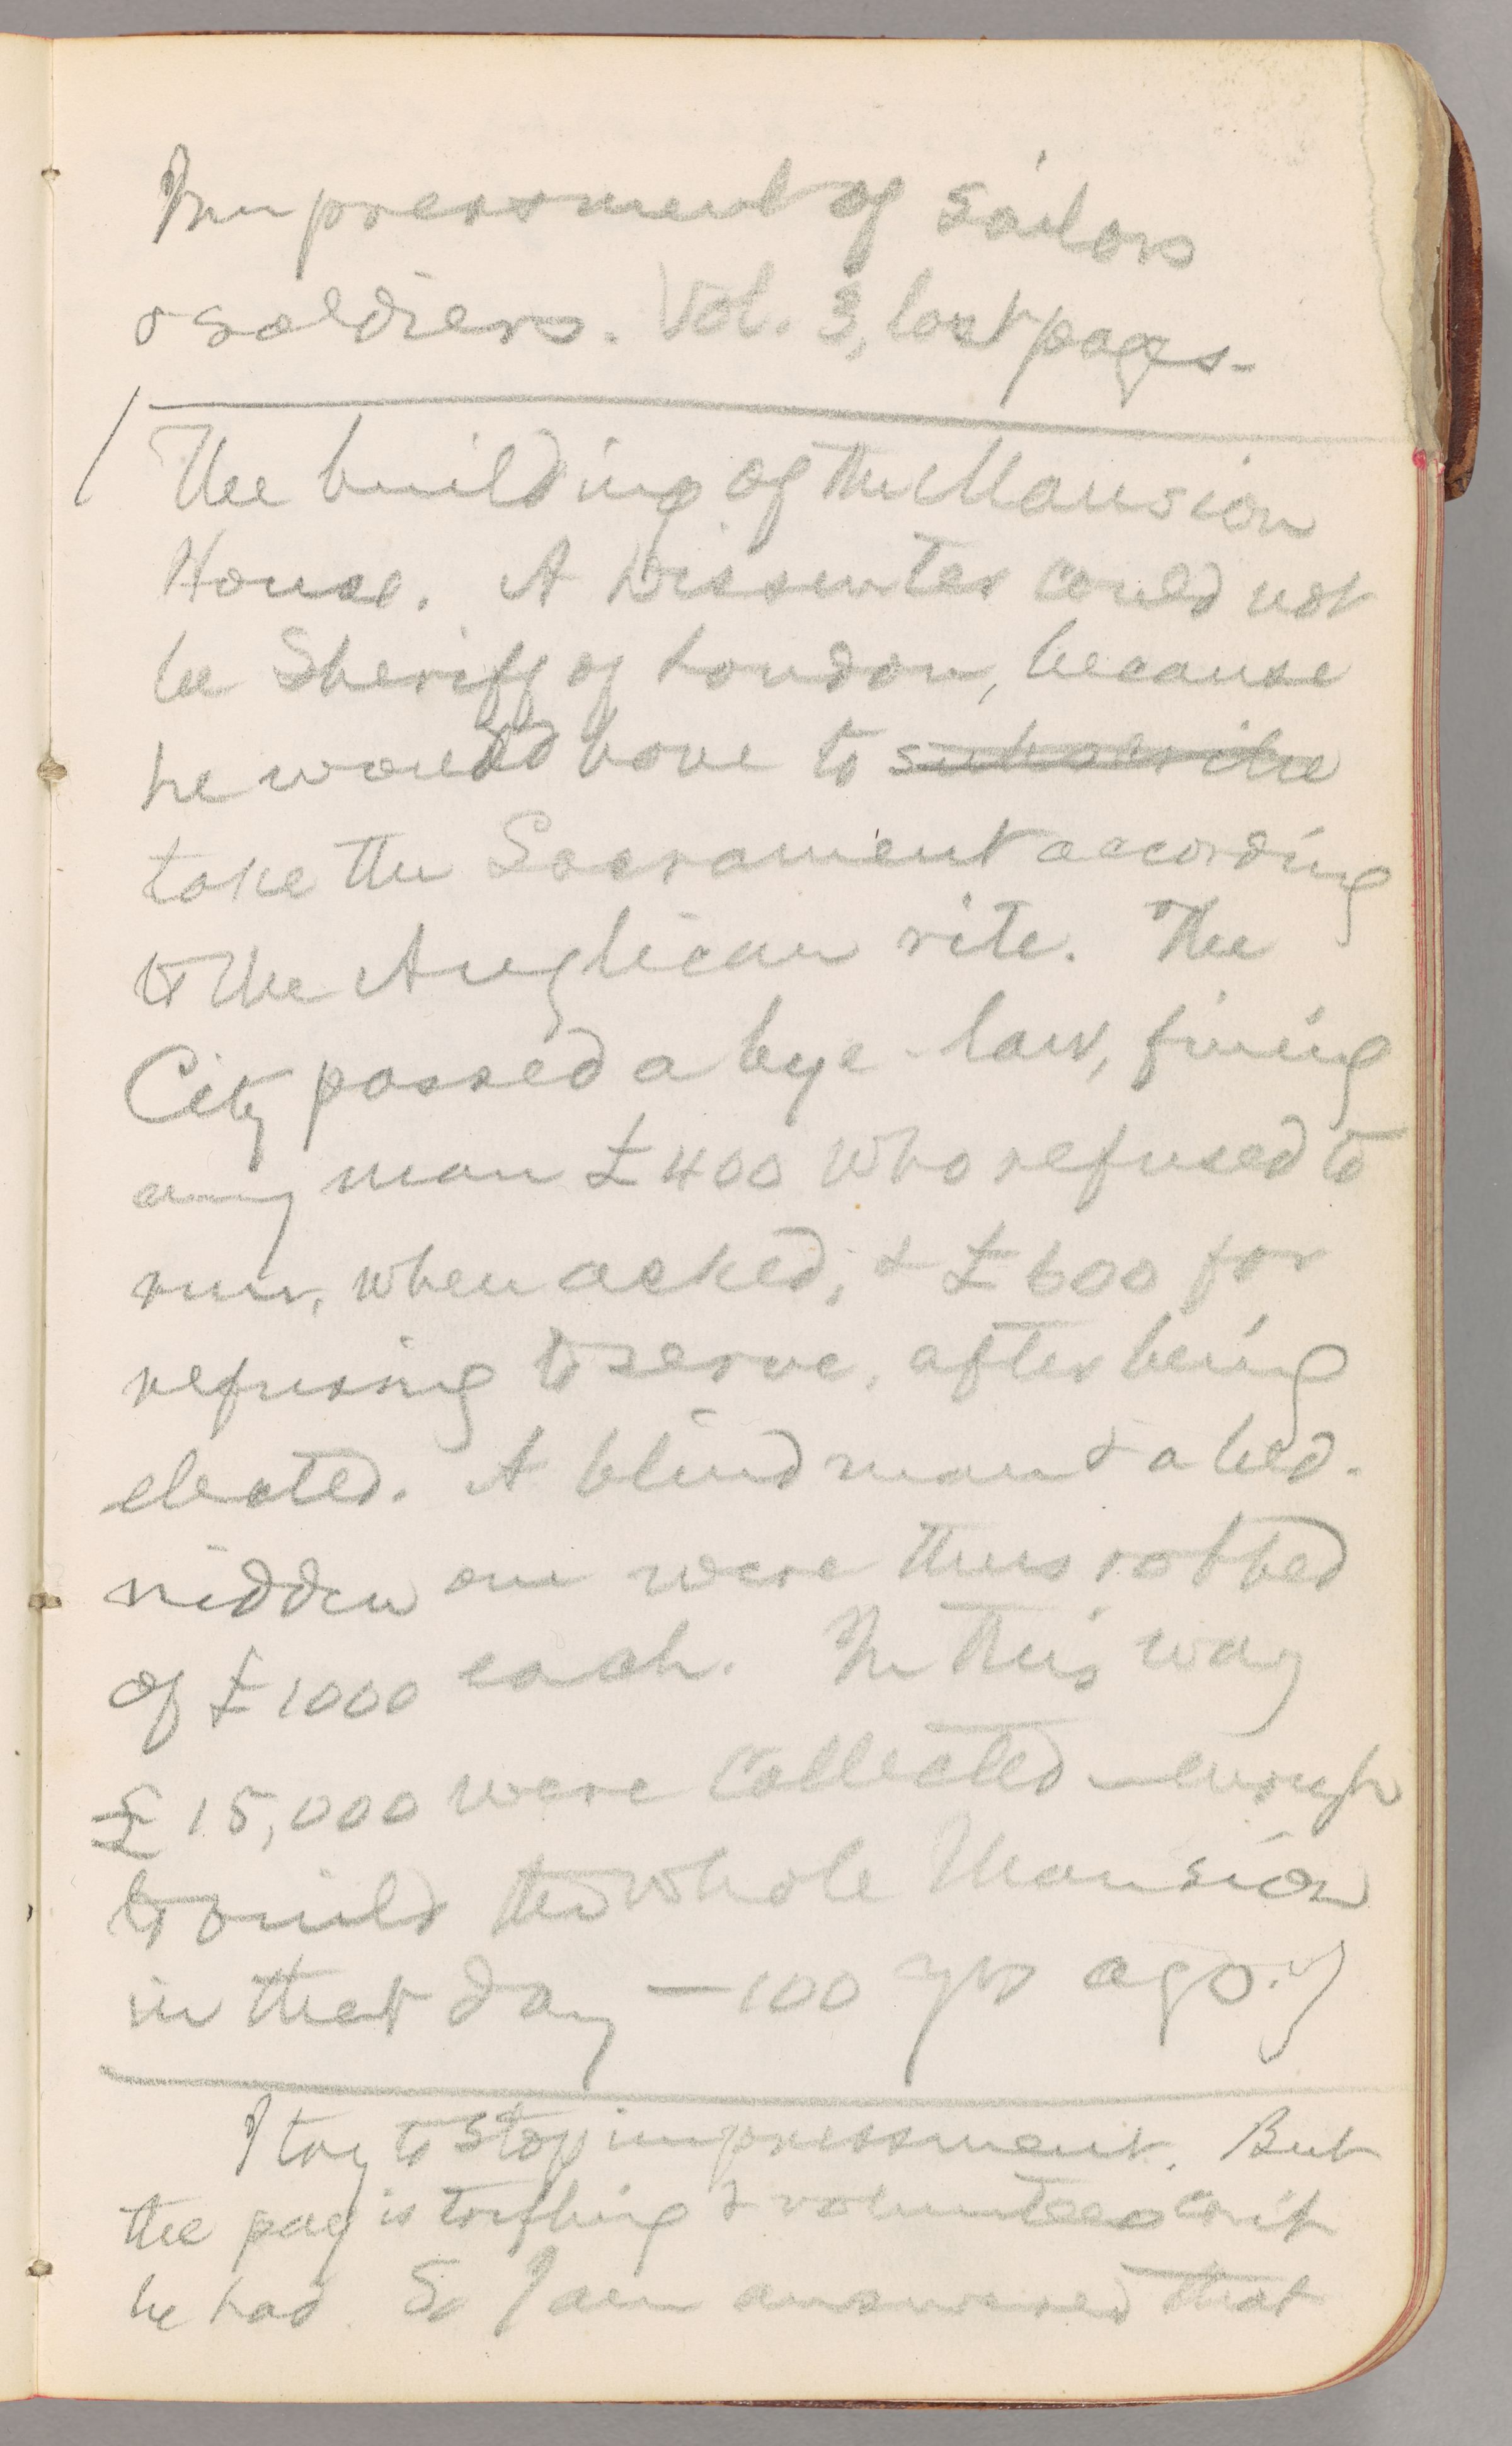 Impressment of sailors
& soldiers. Vol. 3, last pages.
The building of the Mansion
House. A Dissenter could not
be Sheriff of London, because
he would have to subscribe
take the Sacrament according
to the Anglican rite. The
City passed a bye-law, fining
any man £400 who refused to
run, when asked, & £600 for
refusing to serve, after being
elected. A blind man & a bed-
ridden one were thus robbed
of £1000 each. In this way
£15,000 were collected—enough
to build the whole Mansion
in that day — 100 yrs ago.)
I try to stop impressment. But
the pay is trifling & volunteers can't
be had. So I am answered that